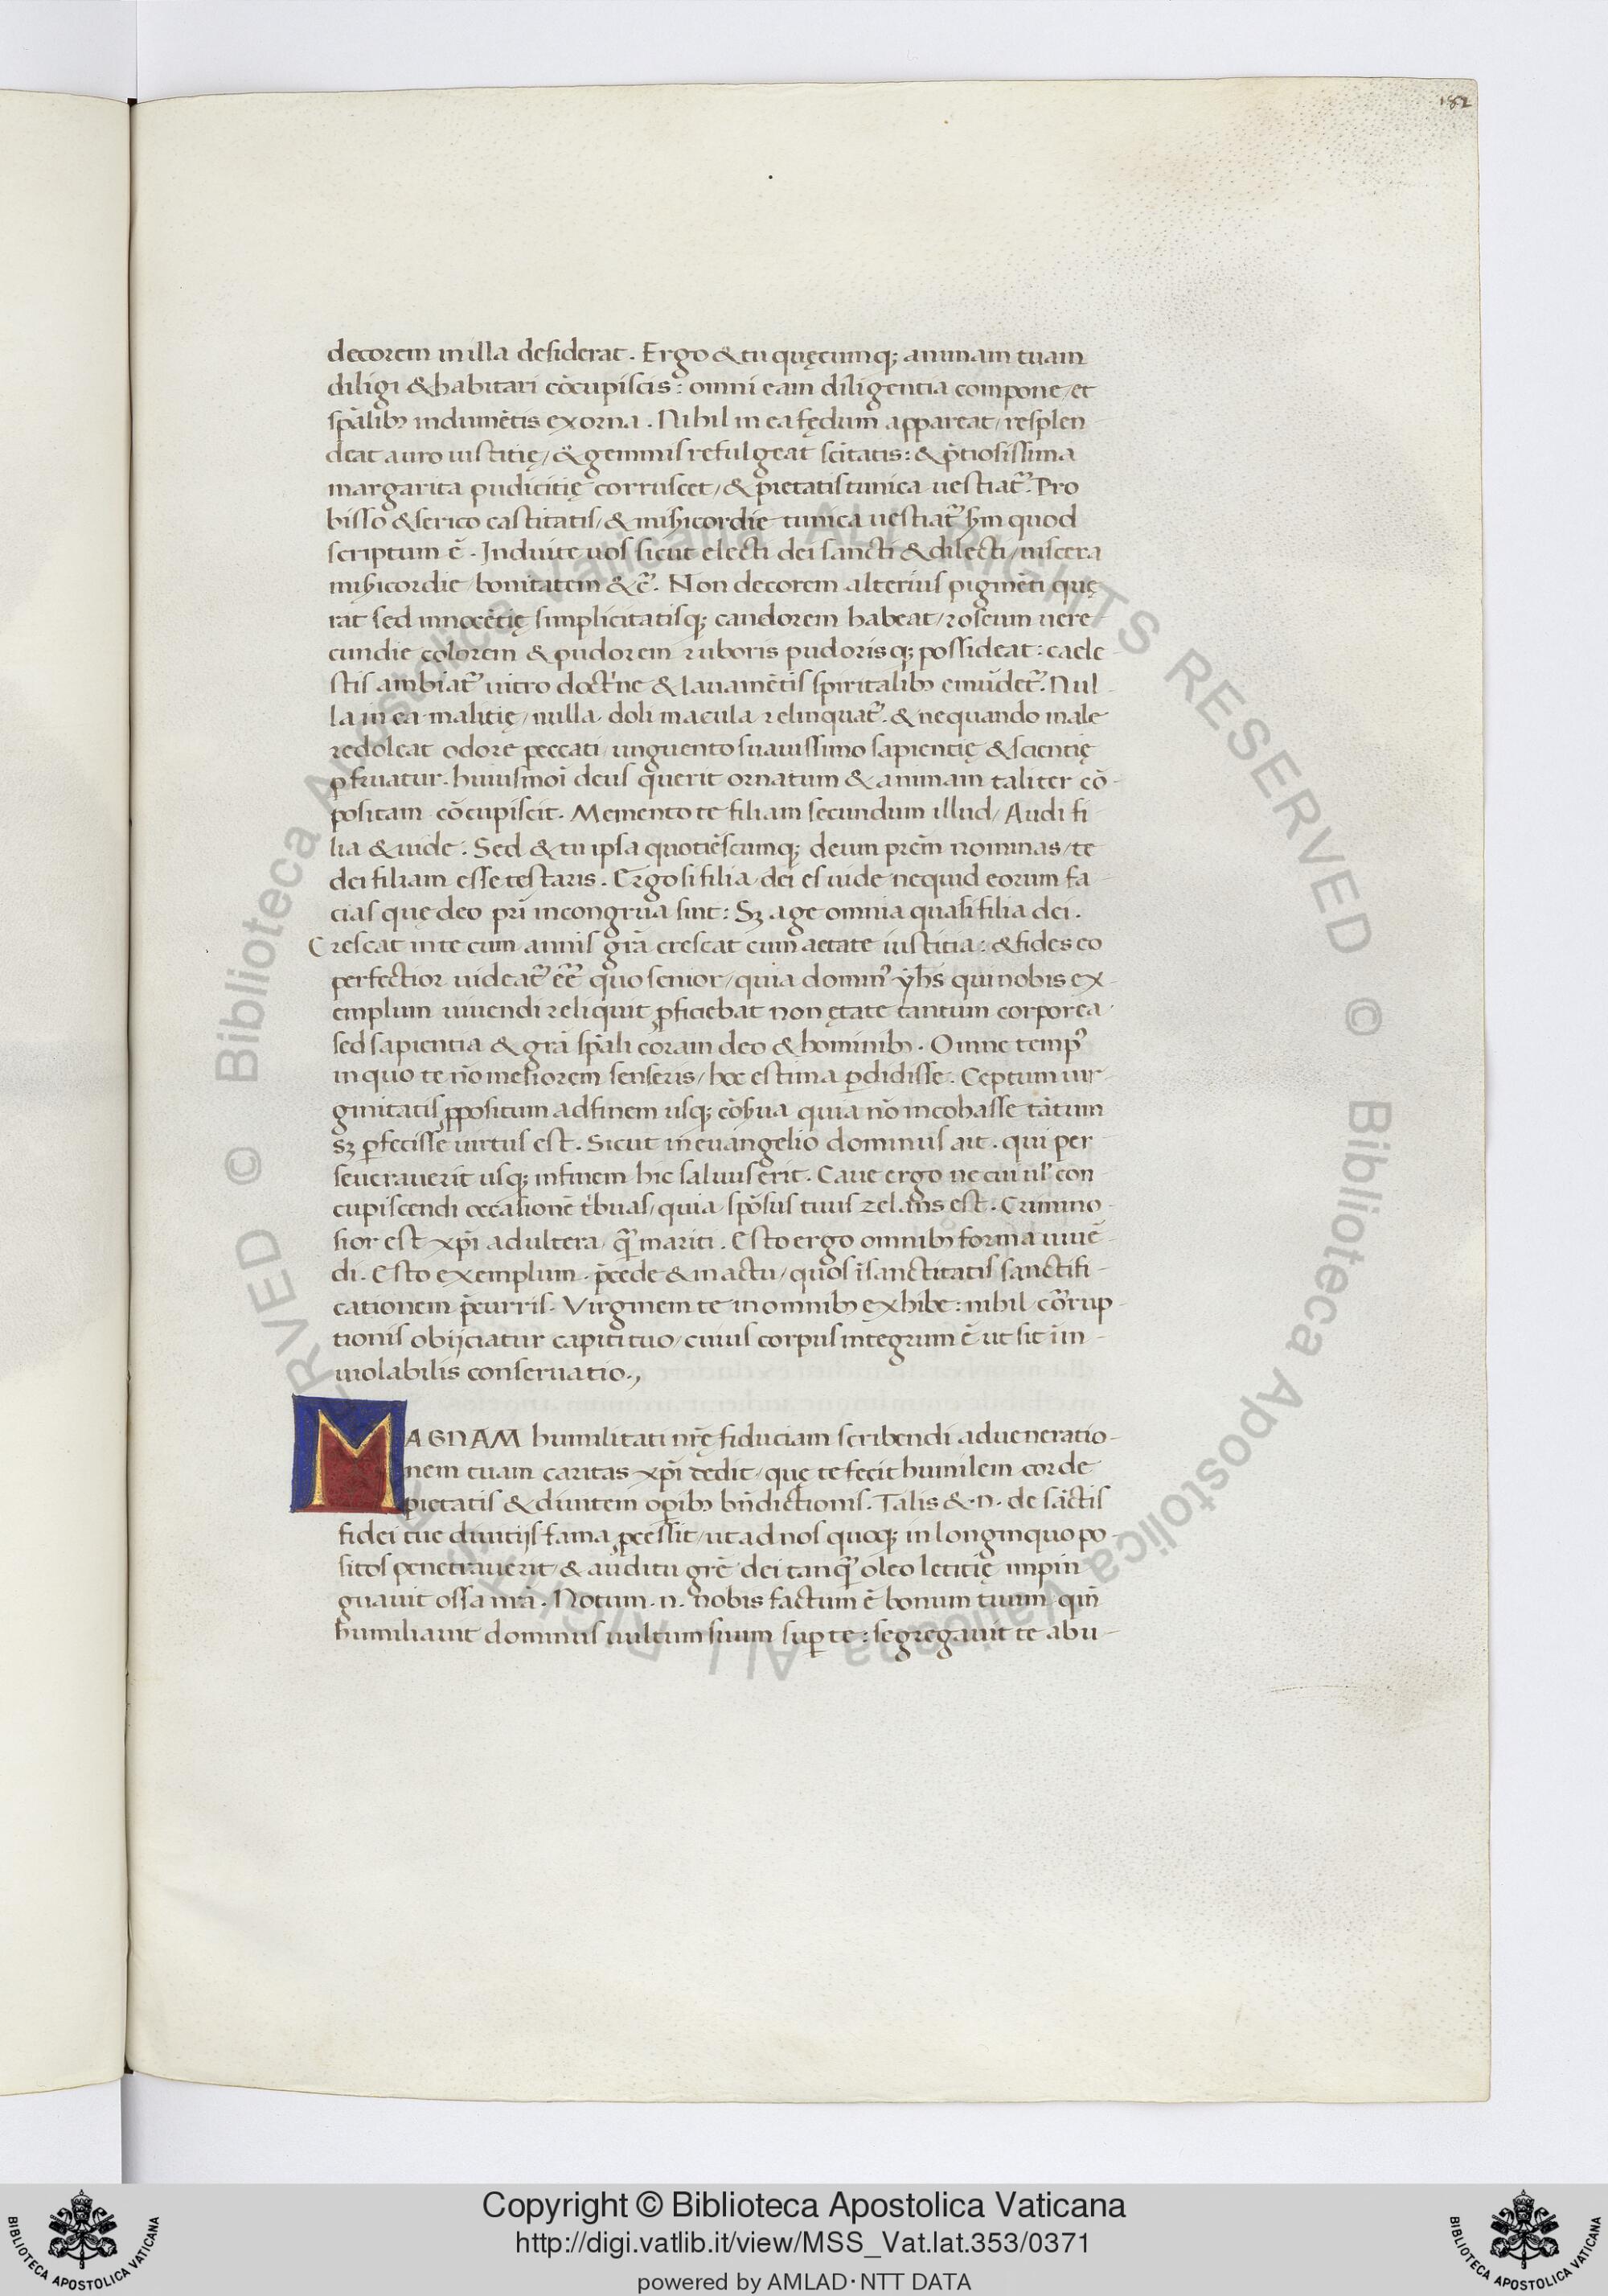 182
decorem in illa desiderat. Ergo & tu quęcumq; animam tuam
diligi & habitari cōcupiscis: omni eam diligentia compone, et
sp̄alib; indumētis exorna. Nihil in ea fędum appareat, resplen
deat auro iustitię, & gemmis refulgeat scītatis: & p̄tiosissima
margarita pudicitię corruscet, & pietatis tunica uestiat̄. Pro
bisso & serico castitatis, & mīsicordie tunica uestiat̄ sm̄ quod
scriptum ē. Induite uos sicut electi dei sancti & dilecti, uiscera
mīsicordie, bonitatem &c̄. Non decorem alterius pigmēti quę
rat sed innocētię simplicitatisq; candorem habeat, roseum uere
cundie colorem & pudorem ruboris pudorisq; possideat: caele
stis ambiat̄ uitro doct'ne & lauamētis spiritalib; emūdet̄. Nul
la in ea malitię, nulla doli macula relinquat̄. & ne quando male
redoleat odore peccati, unguento suauissimo sapientię & scientię
ꝑfruatur. huiusmōi deus querit ornatum & animam taliter cō-
positam cōcupiscit. Memento te filiam secundum illud, Audi fi
lia & uide. Sed & tu ipsa quotiēscumq; deum prēm nominas, te
dei filiam esse testaris. Ergo si filia dei es uide nequid eorum fa-
cias quę deo prī incongrua sint: Sȝ age omnia quasi filia dei.
Crescat in te cum annis grā crescat cum aetate iustitia: & fides eo
perfectior uideat̄ eē quo senior, quia domin' yhs̄ qui nobis ex-
emplum uiuendi reliquit ꝓficiebat non ętate tantum corporea
sed sapientia & grā sp̄ali coram deo & hominib;. Omne temp'
in quo te nō meliorem senseris, hoc estima ꝑdidisse. Ceptum uir
ginitatis ꝓpositum ad finem usq; cōsua quia nō incohasse tātum
sȝ ꝑfecisse uirtus est. Sicut in euangelio dominus ait. qui per
seuerauerit usq; in finem hic saluus erit. Caue ergo ne cui ul' con
cupiscendi occasionē t'buas, quia spōsus tuus zelans est. Crimino
sior est xp̄i adultera, q̄ mariti. Esto ergo omnib; forma uiuē
di. Esto exemplum. p̄cede & in actu, quos ī sanctitatis sanctifi-
cationem p̄curris. Virginem te in omnib; exhibe: nihil cōrrup
tionis obijciatur capiti tuo, cuius corpus integrum ē ut sit in-
uiolabilis conseruatio.,
MAGNAM humilitati nr̄ę fiduciam scribendi ad ueneratio-
nem tuam caritas xp̄i dedit, quę te fecit humilem corde
pietatis & diuitem oꝑib; bn̄dictionis. Talis &.n. de sāctis
fidei tue diuitijs fama ꝓcessit, ut ad nos quoq; in longinquo po-
sitos penetrauerit, & auditu grē dei tanq̄ oleo letitię impin
guauit ossa nr̄a. Notum .n. nobis factum ē bonum tuum qm̄
humiliauit dominus uultum suum suꝑ te: segregauit te ab u-
Copyright © Biblioteca Apostolica Vaticana
http://digi.vatlib.it/view/MSS_Vat.lat.353/0371
powered by AMLAD·NTT DATA